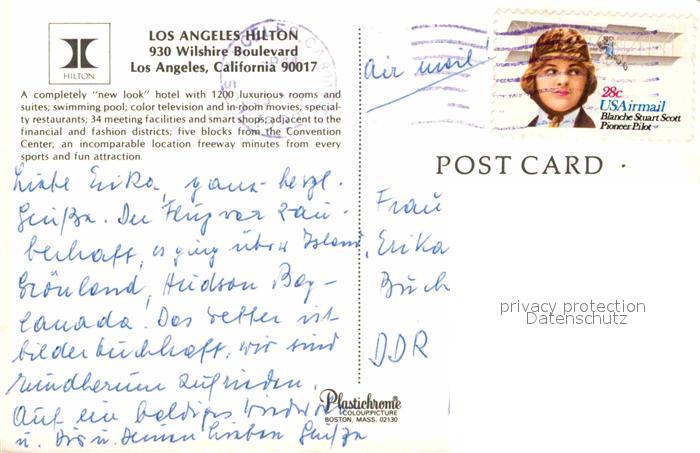 LOS ANGELES HILTON
930 Wilshire Boulevard
Los Angeles, California 90017
HILTON
A completely "new look" hotel with 1200 luxurious rooms and
suites; swimming pool; color television and in-room movies; special-
ty restaurants; 34 meeting facilities and smart shops; adjacent to the
financial and fashion districts; five blocks from the Convention
Center; an incomparable location freeway minutes from every
sports and fun attraction.
Liebe Erika, ganz herzl.
Grüße. Der Flug war zau-
berhaft, es ging über Island,
Grönland, Hudson Bay-
Canada. Das Wetter ist
bilderbuchhaft, wir sind
rundherum zufrieden.
Auf ein baldiges
u. Dir u. Deinen lieben Grüße
Plastichrome®
COLOURPICTURE
BOSTON, MASS. 02130
air mail!
28c
USAirmail
Blanche Stuart Scott
Pioneer Pilot
POST CARD
Frau
Erika
Buch
DDR
privacy protection
Datenschutz